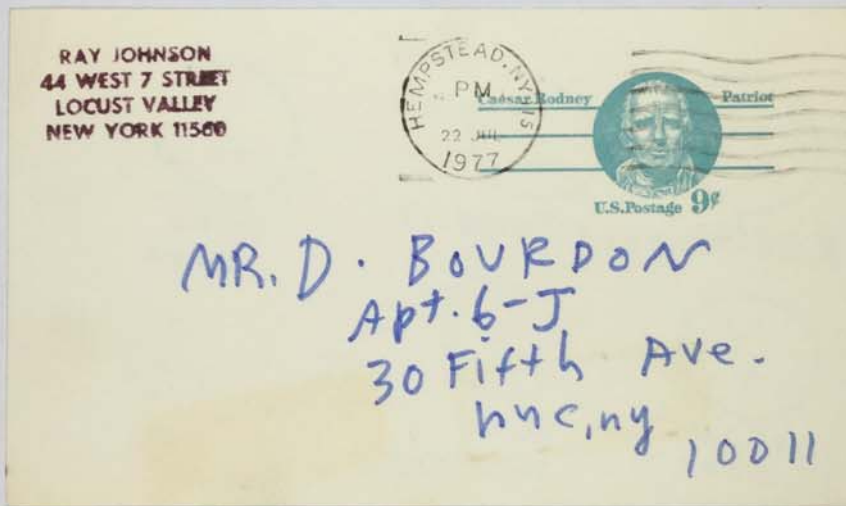 RAY JOHNSON
44 WEST 7 STREET
LOCUST VALLEY
NEW YORK 11560
HEMPSTEAD, NY 115
PM
22 JUL
1977
Caesar Rodney Patriot
U.S. Postage 9¢
MR. D. BOURDON
Apt. 6-J
30 Fifth Ave.
nyc, ny
10011